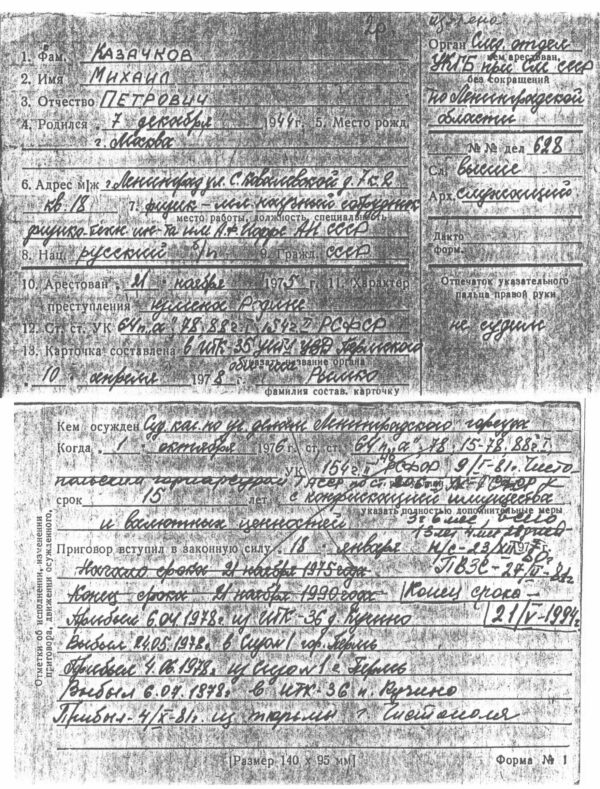 1. Фам. КАЗАЧКОВ
2. Имя МИХАИЛ
3. Отчество ПЕТРОВИЧ
4. Родился 7 декабря 1944 г. 5. Место рожд.
г. Москва
6. Адрес м/ж г. Ленинград ул. С. Ковалевской д. 7 к. 2
кв 18 7. физик – мл. научный сотрудник
место работы, должность, специальность
физико-техн. ин-та им А.Ф. Иоффе АН СССР
8. Нац. русский б/п 9. Гражд. СССР
10. Арестован 21 ноября 1975 г. 11. Характер
преступления измена Родине
12. Ст. ст. УК 64 п. "а", 78, 88 ч. I 154 ч. II РСФСР
13. Карточка составлена в ИТК-35 УВД Пермского
название органа
10 апреля 1978 г.
фамилия состав. карточку
Орган След. отдел
кем арестован,
УКГБ при СМ СССР
без сокращений
по Ленинградской
области
№№ дел 628
Сл. высшее
Арх. служащий
Дакто
форм.
Отпечаток указательного
пальца правой руки
не судим
Кем осужден Суд. кол. по уг. делам Ленинградского горсуда
Когда 1 октября 1976 г. ст. ст. 64 п. "а", 78, 15-78, 88 ч. I
УК 154 ч. II РСФСР 9/I-81г.
срок 15 лет, с конфискацией имущества
указать полностью дополнительные меры
и валютных ценностей
Приговор вступил в законную силу 18 января
Начало срока 21 ноября 1975 года
Конец срока 21 ноября 1990 года Конец срока –
21/V-1994г
Прибыл 6.04.1978г. из ИТК-36 п. Кучино
Выбыл 24.05.1978г. в Сизо №1 гор. Пермь
Прибыл 4.06.1978г. из Сизо №1 г. Пермь
Выбыл 6.07.1878г. в ИТК-36 п. Кучино
Прибыл – 4/X-81г. из тюрьмы г. Чистополя
Отметки об исполнении, изменении
приговора, движении осужденного,
[Размер 140 × 95 мм] Форма № 1